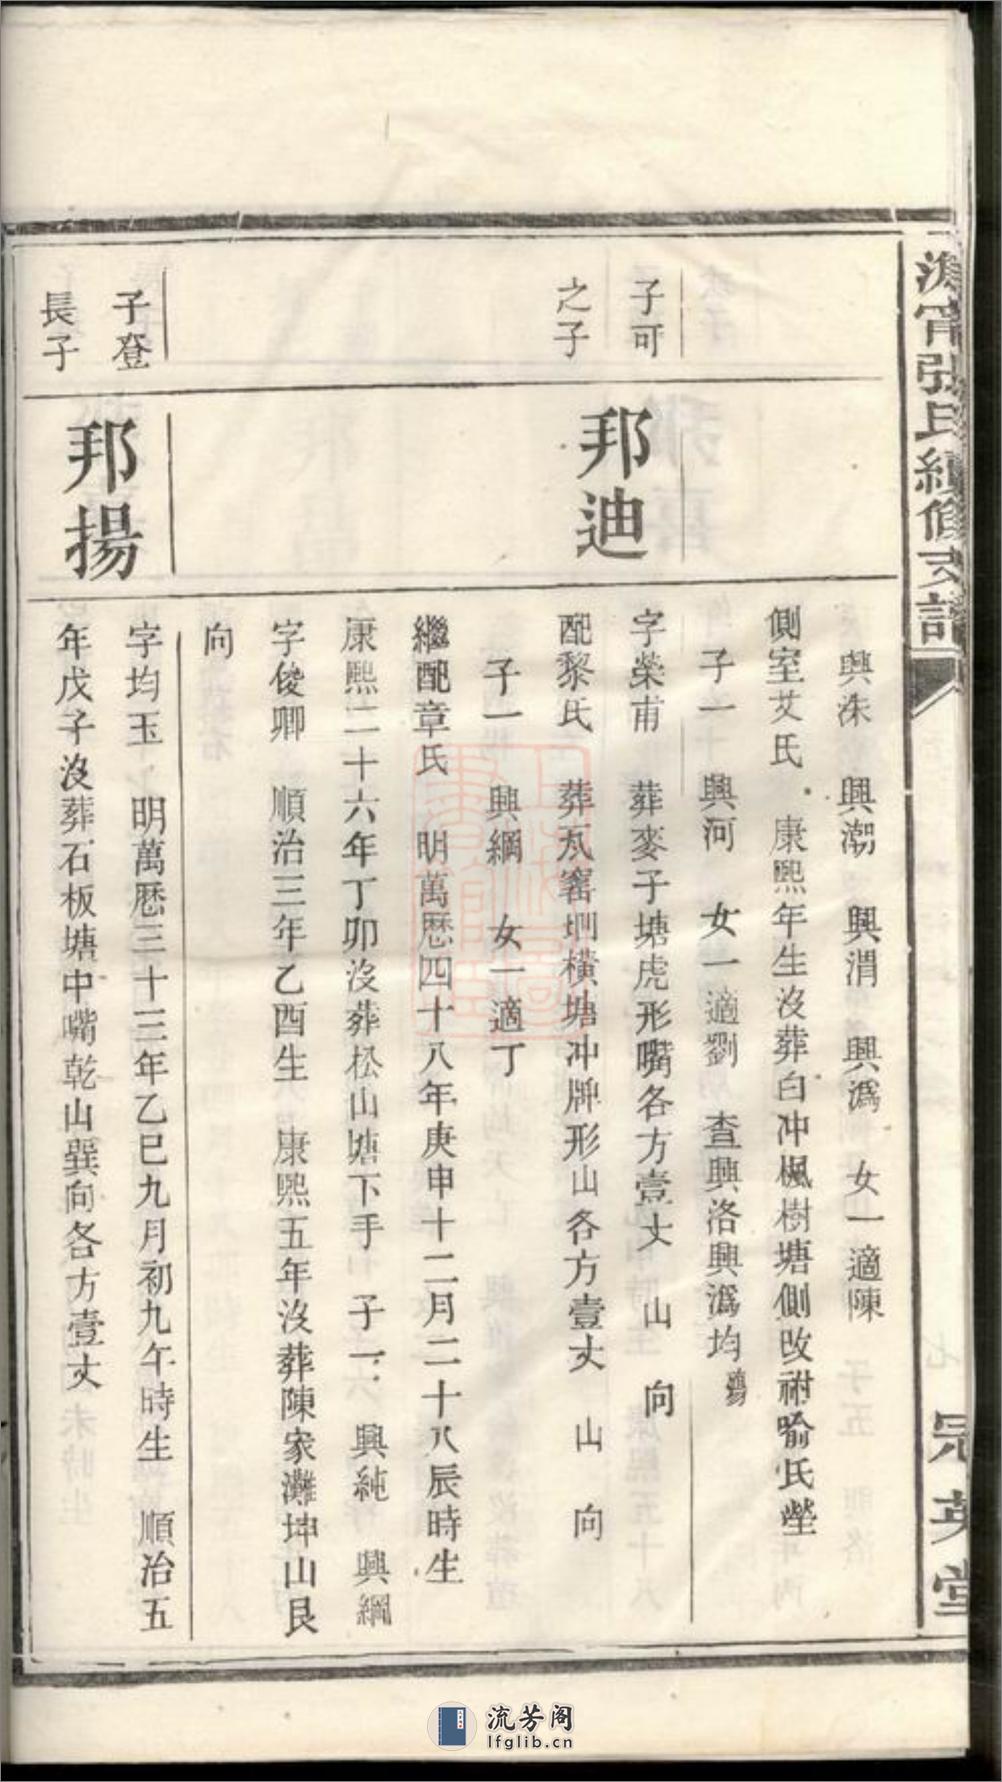 甯張氏續修支譜
冠英堂
興洙　興潮　興渭　興潙　女一適陳
側室艾氏　康熙年生沒葬白冲楓樹塘側改祔喻氏塋
子一　興河　女一適劉　查興洛興潙均
子可
之子
邦迪
字榮甫　葬麥子塘虎形嘴各方壹丈　山　向
配黎氏　葬瓦窰圳橫塘冲牌形山各方壹丈　山　向
子一　興綱　女一適丁
繼配章氏　明萬厯四十八年庚申十二月二十八辰時生
康熙二十六年丁卯沒葬松山塘下手　子一　興純　興綱
字俊卿　順治三年乙酉生　康熙五年沒葬陳家灘坤山艮
向
子登
長子
邦揚
字均玉　明萬厯三十三年乙巳九月初九午時生　順治五
年戊子沒葬石板塘中嘴乾山巽向各方壹丈
流芳阁
lfglib.cn